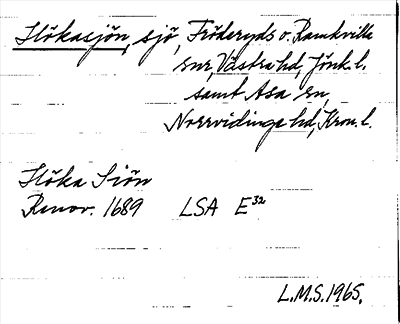 Hökasjön, sjö, Fröderyds o. Ramkvilla
snr, Västra hd, Jönk. l.
samt Asa sn,
Norrvidinge hd, Kron. l.
Höka Siön
Renov. 1689 LSA E³²
L.M.S. 1965.